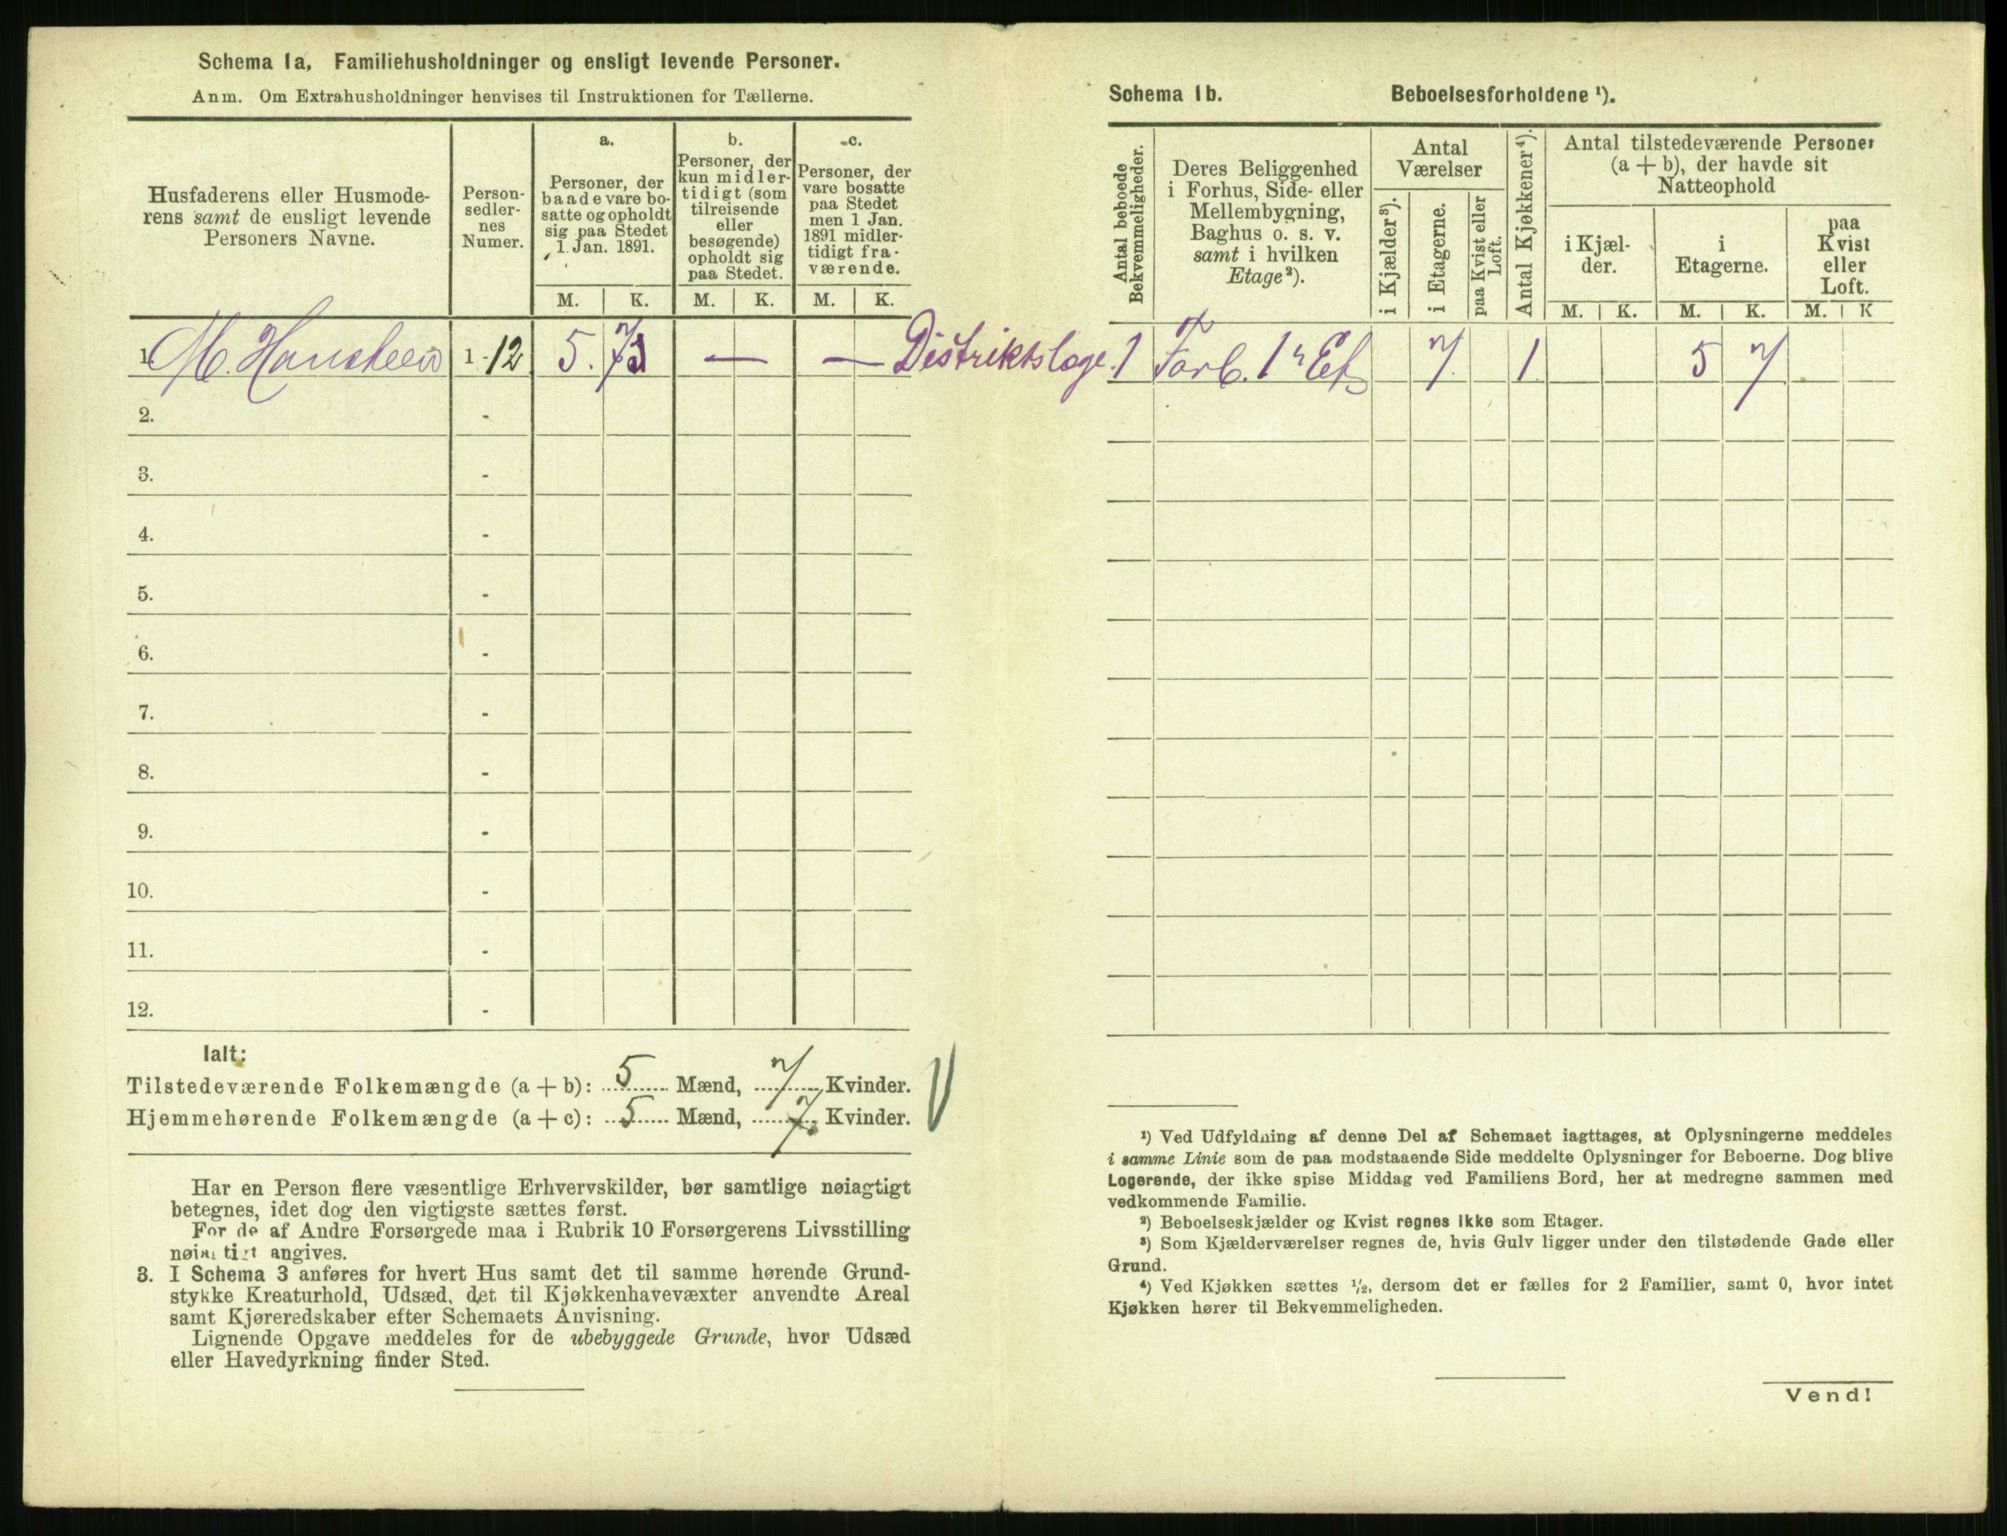 Schema 1a. Familiehusholdninger og ensligt levende Personer.
Anm. Om Extrahusholdninger henvises til Instruktionen for Tællerne.
Husfaderens eller Husmode-
rens samt de ensligt levende
Personers Navne.
Person-
sedler-
nes
Numer.
a.
Personer, der
baade vare bo-
satte og opholdt
sig paa Stedet
1. Jan. 1891.
b.
Personer, der
kun midler-
tidigt (som
tilreisende
eller
besøgende)
opholdt sig
paa Stedet.
c.
Personer, der
vare bosatte
paa Stedet
men 1 Jan.
1891 midler-
tidigt fra-
værende.
M. K. M. K. M. K.
1. M. Hansteen 1-12 5. 7 — —
2. -
3. -
4. -
5. -
6. -
7. -
8. -
9. -
10. -
11. -
12. -
Ialt:
Tilstedeværende Folkemængde (a + b): 5 Mænd, 7 Kvinder.
Hjemmehørende Folkemængde (a + c): 5 Mænd, 7 Kvinder.
Har en Person flere væsentlige Erhvervskilder, bør samtlige nøiagtigt
betegnes, idet dog den vigtigste sættes først.
For de af Andre Forsørgede maa i Rubrik 10 Forsørgerens Livsstilling
nøiagtigt angives.
3. I Schema 3 anføres for hvert Hus samt det til samme hørende Grund-
stykke Kreaturhold, Udsæd, det til Kjøkkenhavevæxter anvendte Areal
samt Kjøreredskaber efter Schemaets Anvisning.
Lignende Opgave meddeles for de ubebyggede Grunde, hvor Udsæd
eller Havedyrkning finder Sted.
Schema 1b. Beboelsesforholdene ¹).
Antal beboede
Bekvemmeligheder.
Deres Beliggenhed
i Forhus, Side- eller
Mellembygning,
Baghus o. s. v.
samt i hvilken
Etage²).
Antal
Værelser
i Kjælder³).
i Etagerne.
paa Kvist eller
Loft.
Antal Kjøkkener⁴).
Antal tilstedeværende Personer
(a + b), der havde sit
Natteophold
i Kjæl-
der.
i
Etagerne.
paa
Kvist
eller
Loft.
M. K. M. K. M. K
Distriktslæge. 1 1 Et 7. 1 5 7
¹) Ved Udfyldning af denne Del af Schemaet iagttages, at Oplysningerne meddeles
i samme Linie som de paa modstaaende Side meddelte Oplysninger for Beboerne. Dog blive
Logerende, der ikke spise Middag ved Familiens Bord, her at medregne sammen med
vedkommende Familie.
²) Beboelseskjælder og Kvist regnes ikke som Etager.
³) Som Kjælderværelser regnes de, hvis Gulv ligger under den tilstødende Gade eller
Grund.
⁴) Ved Kjøkken sættes ½, dersom det er fælles for 2 Familier, samt 0, hvor intet
Kjøkken hører til Bekvemmeligheden.
Vend!